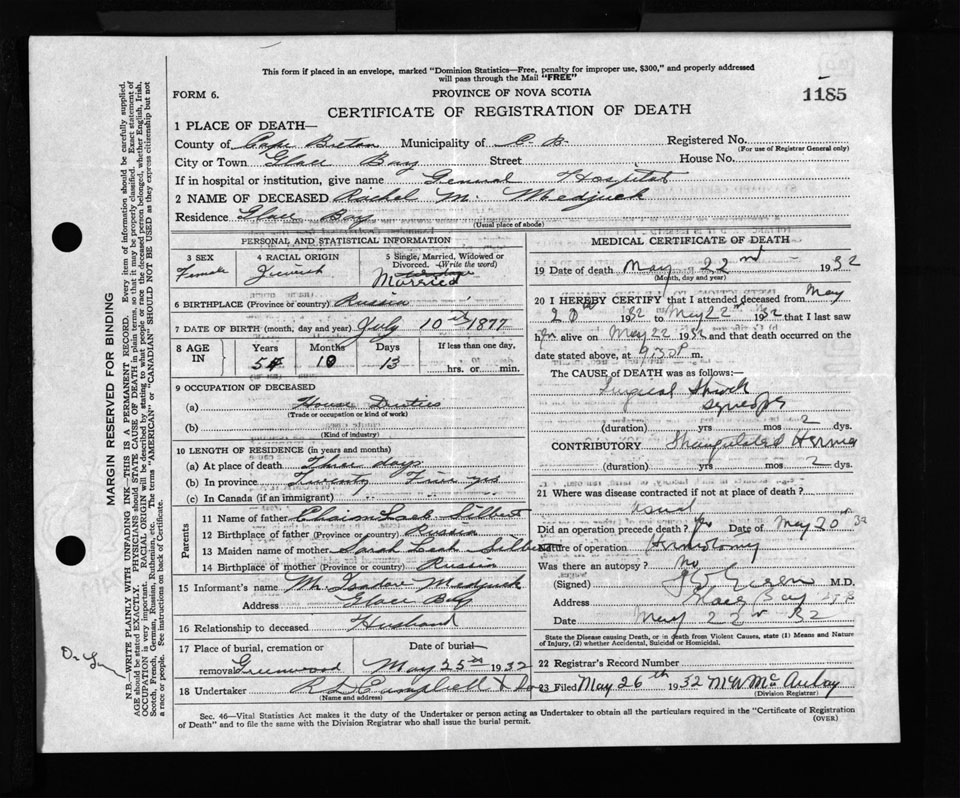 This form if placed in an envelope, marked "Dominion Statistics—Free, penalty for improper use, $300," and properly addressed
will pass through the Mail "FREE"
FORM 6.
PROVINCE OF NOVA SCOTIA
1185
CERTIFICATE OF REGISTRATION OF DEATH
1 PLACE OF DEATH—
County of Cape Breton Municipality of C. B. Registered No.
(For use of Registrar General only)
City or Town Glace Bay Street House No.
If in hospital or institution, give name General Hospital
2 NAME OF DECEASED Rachel M. Medjuck
Residence Glace Bay
(Usual place of abode)
PERSONAL AND STATISTICAL INFORMATION
3 SEX
Female
4 RACIAL ORIGIN
Jewish
5 Single, Married, Widowed or
Divorced. (Write the word)
Married
6 BIRTHPLACE (Province or country) Russia
7 DATE OF BIRTH (month, day and year) July 10th 1877
8 AGE IN
Years Months Days If less than one day,
54 10 13
hrs. or min.
9 OCCUPATION OF DECEASED
(a) House Duties
(Trade or occupation or kind of work)
(b)
(Kind of industry)
10 LENGTH OF RESIDENCE (in years and months)
(a) At place of death Three days
(b) In province Twenty Five yrs
(c) In Canada (if an immigrant)
Parents
11 Name of father Chaim Silbert
12 Birthplace of father (Province or country) Russia
13 Maiden name of mother Sarah Leah Silbert
14 Birthplace of mother (Province or country) Russia
15 Informant's name Mr. Isadore Medjuck
Address Glace Bay
16 Relationship to deceased Husband
17 Place of burial, cremation or Date of burial—
removal Greenwood May 25th 1932
18 Undertaker R L Campbell & Co
(Name and address)
MEDICAL CERTIFICATE OF DEATH
19 Date of death May 22nd 1932
(Month, day and year)
20 I HEREBY CERTIFY that I attended deceased from May
20th 1932 to May 22nd 1932 that I last saw
her alive on May 22 1932 and that death occurred on the
date stated above, at P. m.
The CAUSE of DEATH was as follows:—
Surgical Shock
Syncope
(duration) yrs mos 2 dys.
CONTRIBUTORY Strangulated Hernia
(duration) yrs mos 2 dys.
21 Where was disease contracted if not at place of death?
Did an operation precede death? Yes Date of May 20th 32
Nature of operation Herniotomy
Was there an autopsy? No
(Signed) M.D.
Address Glace Bay
Date May 22nd 32
State the Disease causing Death, or in death from Violent Causes, state (1) Means and Nature
of Injury, (2) whether Accidental, Suicidal or Homicidal.
22 Registrar's Record Number
23 Filed May 26th 1932 M W McAulay
(Division Registrar)
Sec. 46—Vital Statistics Act makes it the duty of the Undertaker or person acting as Undertaker to obtain all the particulars required in the "Certificate of Registration
of Death" and to file the same with the Division Registrar who shall issue the burial permit.
(OVER)
MARGIN RESERVED FOR BINDING
N.B.—WRITE PLAINLY WITH UNFADING INK—THIS IS A PERMANENT RECORD. Every item of information should be carefully supplied.
AGE should be stated EXACTLY. PHYSICIANS should STATE CAUSE OF DEATH in plain terms, so that it may be properly classified. Exact statement of
OCCUPATION is very important. RACIAL ORIGIN will be described by stating to what people or race the deceased person belonged, whether English, Irish,
Scotch, French, German, Russian, Ruthenian, etc. The terms "AMERICAN" or "CANADIAN" SHOULD NOT BE USED as they express citizenship but not
a race or people. See instructions on back of Certificate.